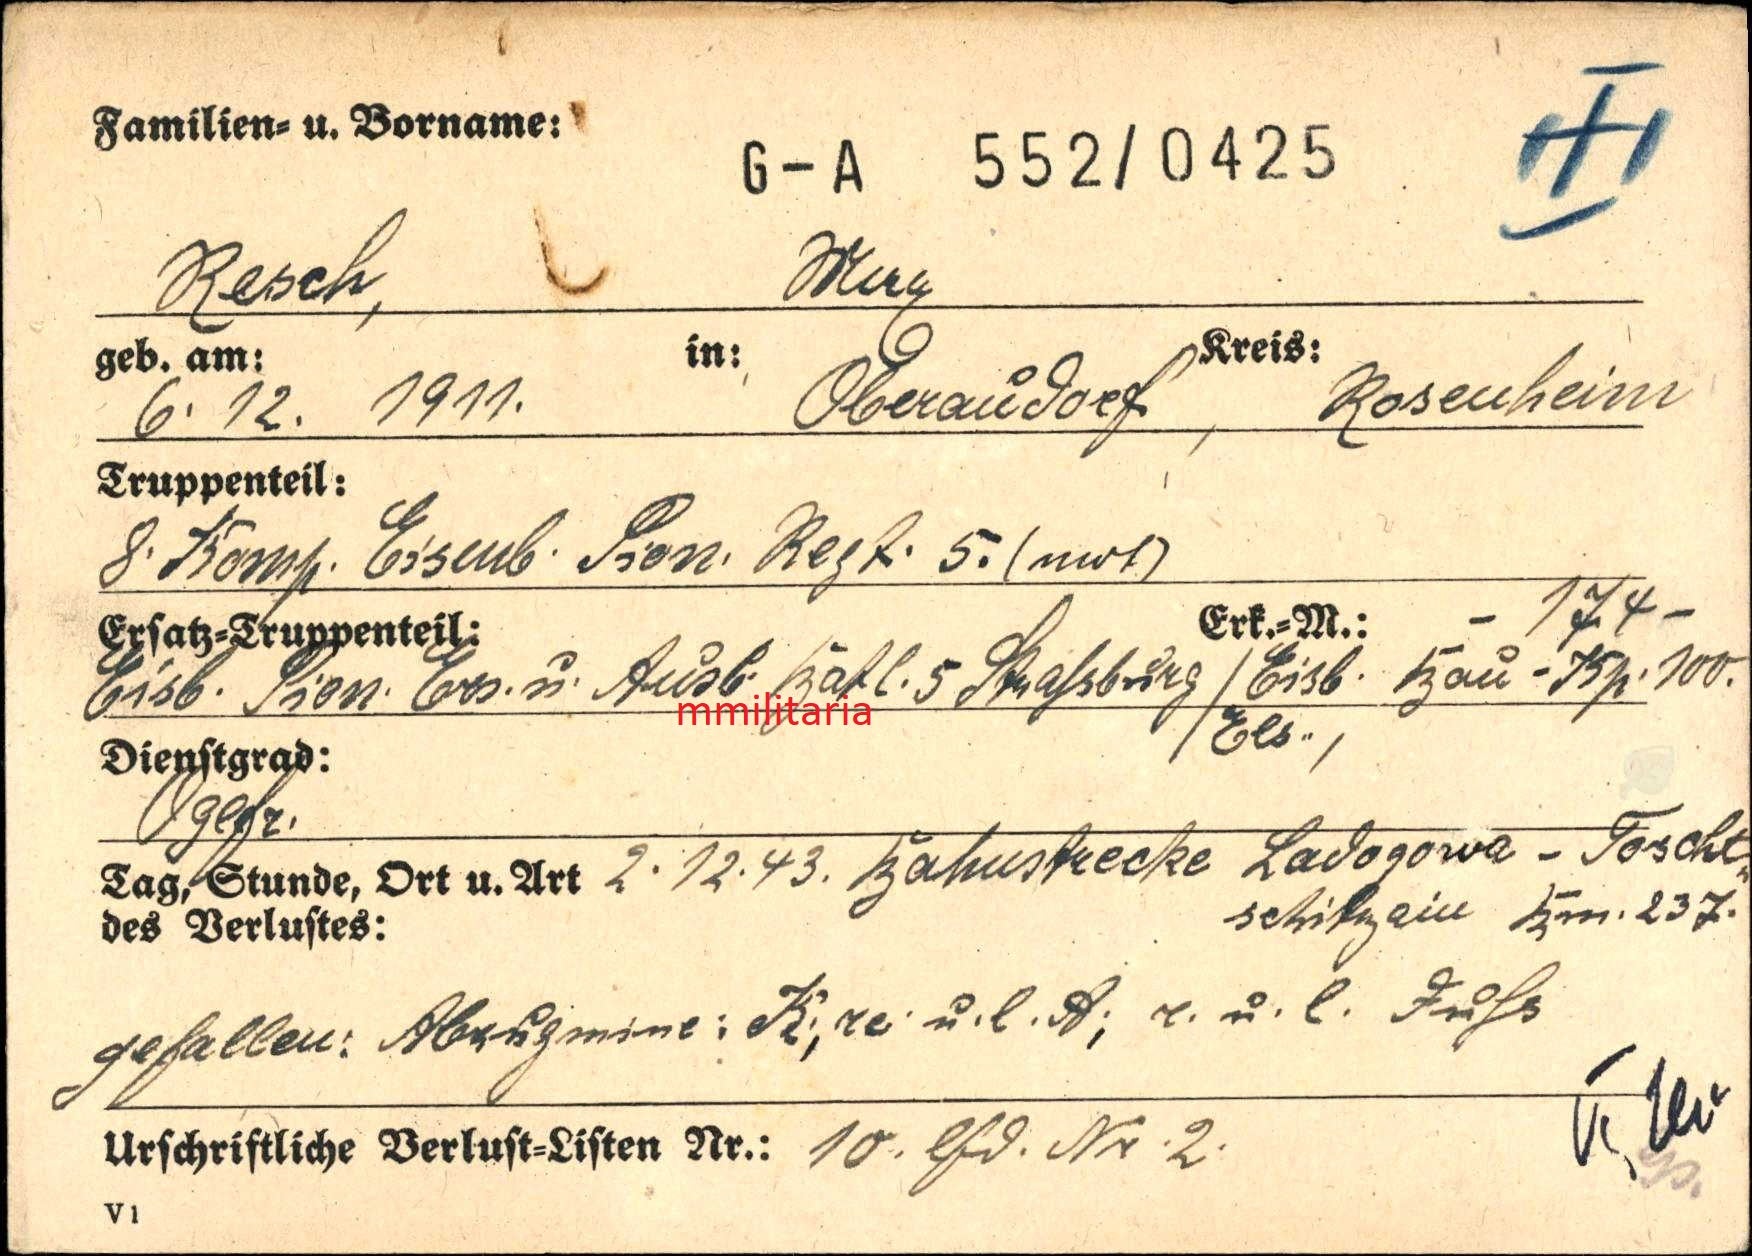 Familien- u. Vorname:
G-A 552/0425
III
Resch,
geb. am: in: Kreis:
6. 12. 1911. Oberaudorf, Rosenheim
Truppenteil:
8. Komp. Eisenb. Pion. Regt. 5. (mot)
Ersatz-Truppenteil: Erk.-M.: - 174 -
Eisb. Pion. Ers. u. Ausb. Batl. 5 Straßburg / Eisb. Bau-Kp. 100.
mmilitaria
/ Els.,
Dienstgrad:
Ogefr.
Tag, Stunde, Ort u. Art 2. 12. 43. Bahnstrecke Ladogowa - Toscht-
des Verlustes: Km. 237.
gefallen: Abzugmine: K, re. u. l. A; r. u. l. Fuß
Urschriftliche Verlust-Listen Nr.: 10. lfd. Nr. 2.
V 1